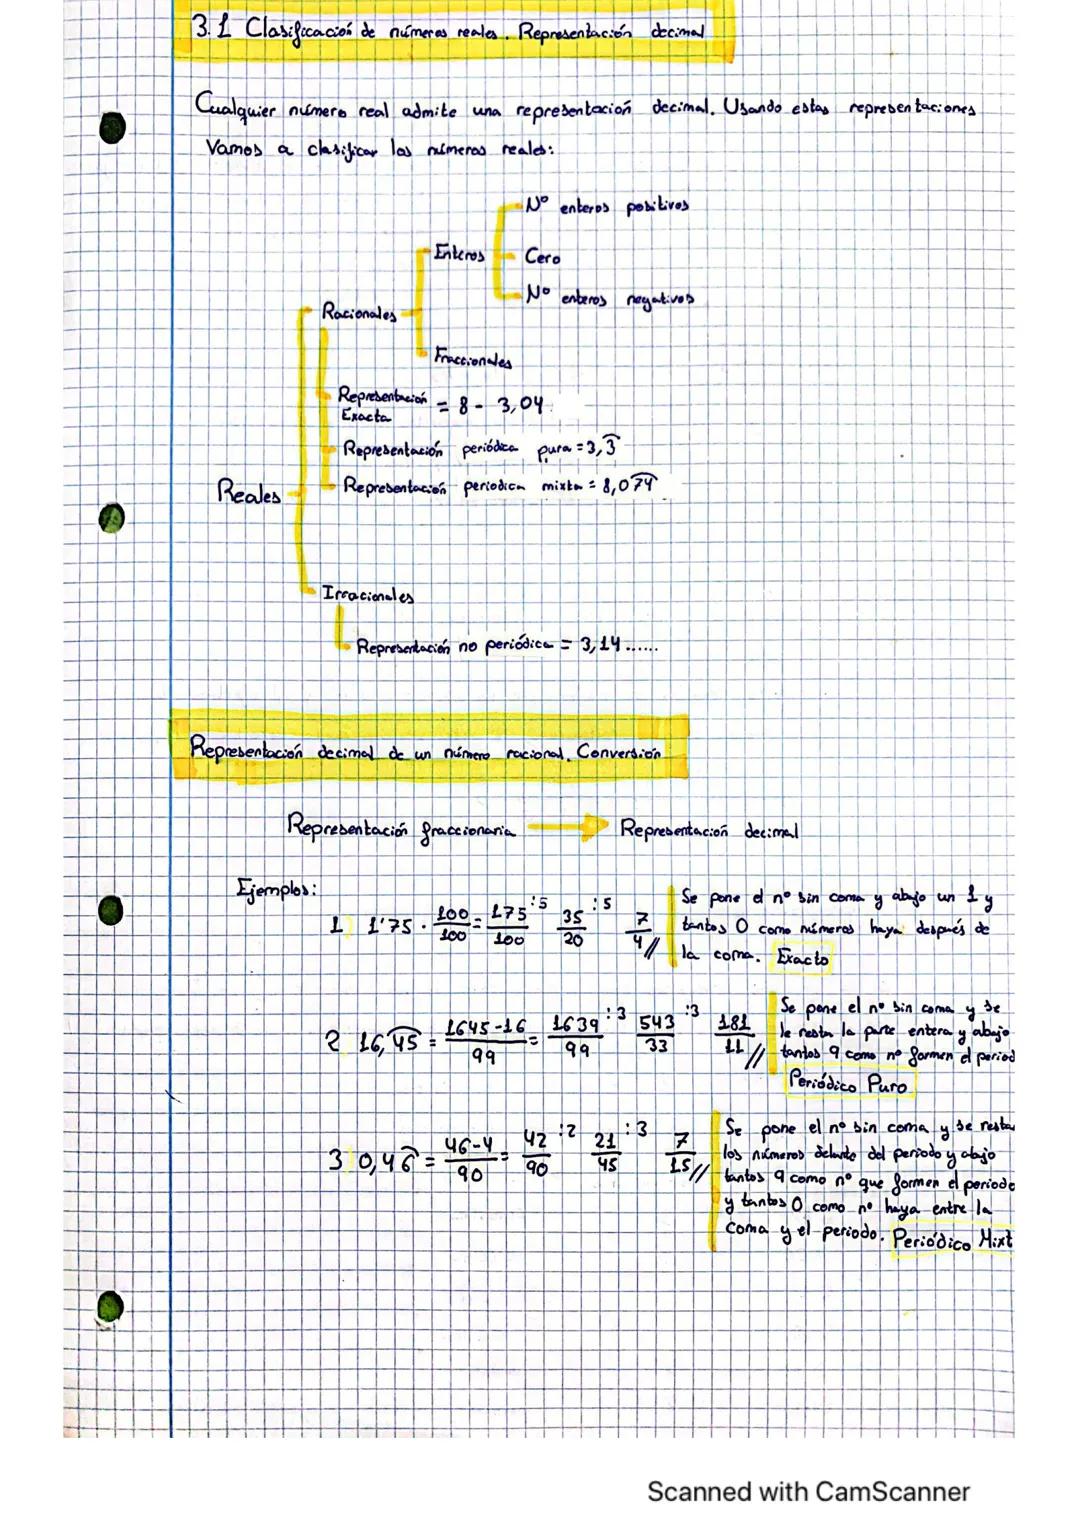 3.1 Clasificación de números reales. Representación decimal
Cualquier número real admite una representación decimal. Usando estas representaciones
Vamos a clasificar los números reales:
Nº enteros positivos
Enteros
Cero
Nº enteros negativos
Racionales
Fraccionales
Representación
Exacta = 8 - 3,04
Representación periódica pura = 3,3̑
Representación periodica mixta = 8,07̑4̑
Reales
Irracionales
Representación no periódica = 3,14......
Representación decimal de un número racional. Conversión
Representación fraccionaria → Representación decimal
Ejemplos:
1) 1'75 · 100/100 = 175/100 :5 35/20 :5 7/4 //
Se pone el nº sin coma y abajo un 1 y
tantos 0 como números haya después de
la coma. Exacto
2 16,4̑5̑ = 1645-16/99 = 1639/99 :3 543/33 :3 181/11 //
Se pone el nº sin coma y se
le resta la parte entera y abajo
tantos 9 como nº formen el period
Periódico Puro
3) 0,46̑ = 46-4/90 = 42/90 :2 21/45 :3 7/15 //
Se pone el nº sin coma y se resta
los números delante del periodo y abajo
tantos 9 como nº que formen el periodo
y tantos 0 como nº haya entre la
coma y el periodo. Periódico Mixt
Scanned with CamScanner